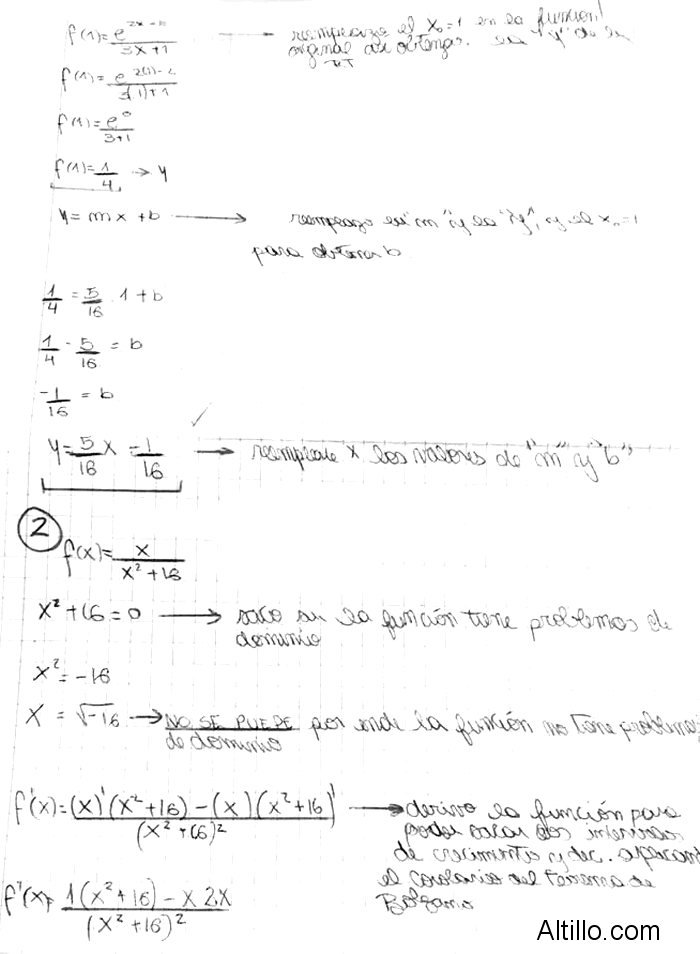 f(1)=e^(2x-2)/3x+1 → reemplazo el x₀=1 en la función
original así obtengo la "y" de la
f(1)=e^(2(1)-2)/3(1)+1
f(1)=e⁰/3+1
f(1)=1/4 → y
y=mx+b → reemplazo en "m" y la "y", y el x₀=1
para obtener b
1/4=5/16.1+b
1/4-5/16=b
-1/16=b
y=5/16x-1/16 → reemplace x los valores de "m" y "b"
2
f(x)=x/x²+16
x²+16=0 → saco si la función tiene problemas de
dominio
x²=-16
x=√-16 → NO SE PUEDE por ende la función no tiene problemas
de dominio
f'(x)=(x)'(x²+16)-(x)(x²+16)'/(x²+16)² → derivo la función para
poder sacar los intervalos
de crecimiento y dec.
el corolario del teorema de
Bolzano
f'(x)=1(x²+16)-x2x/(x²+16)²
Altillo.com